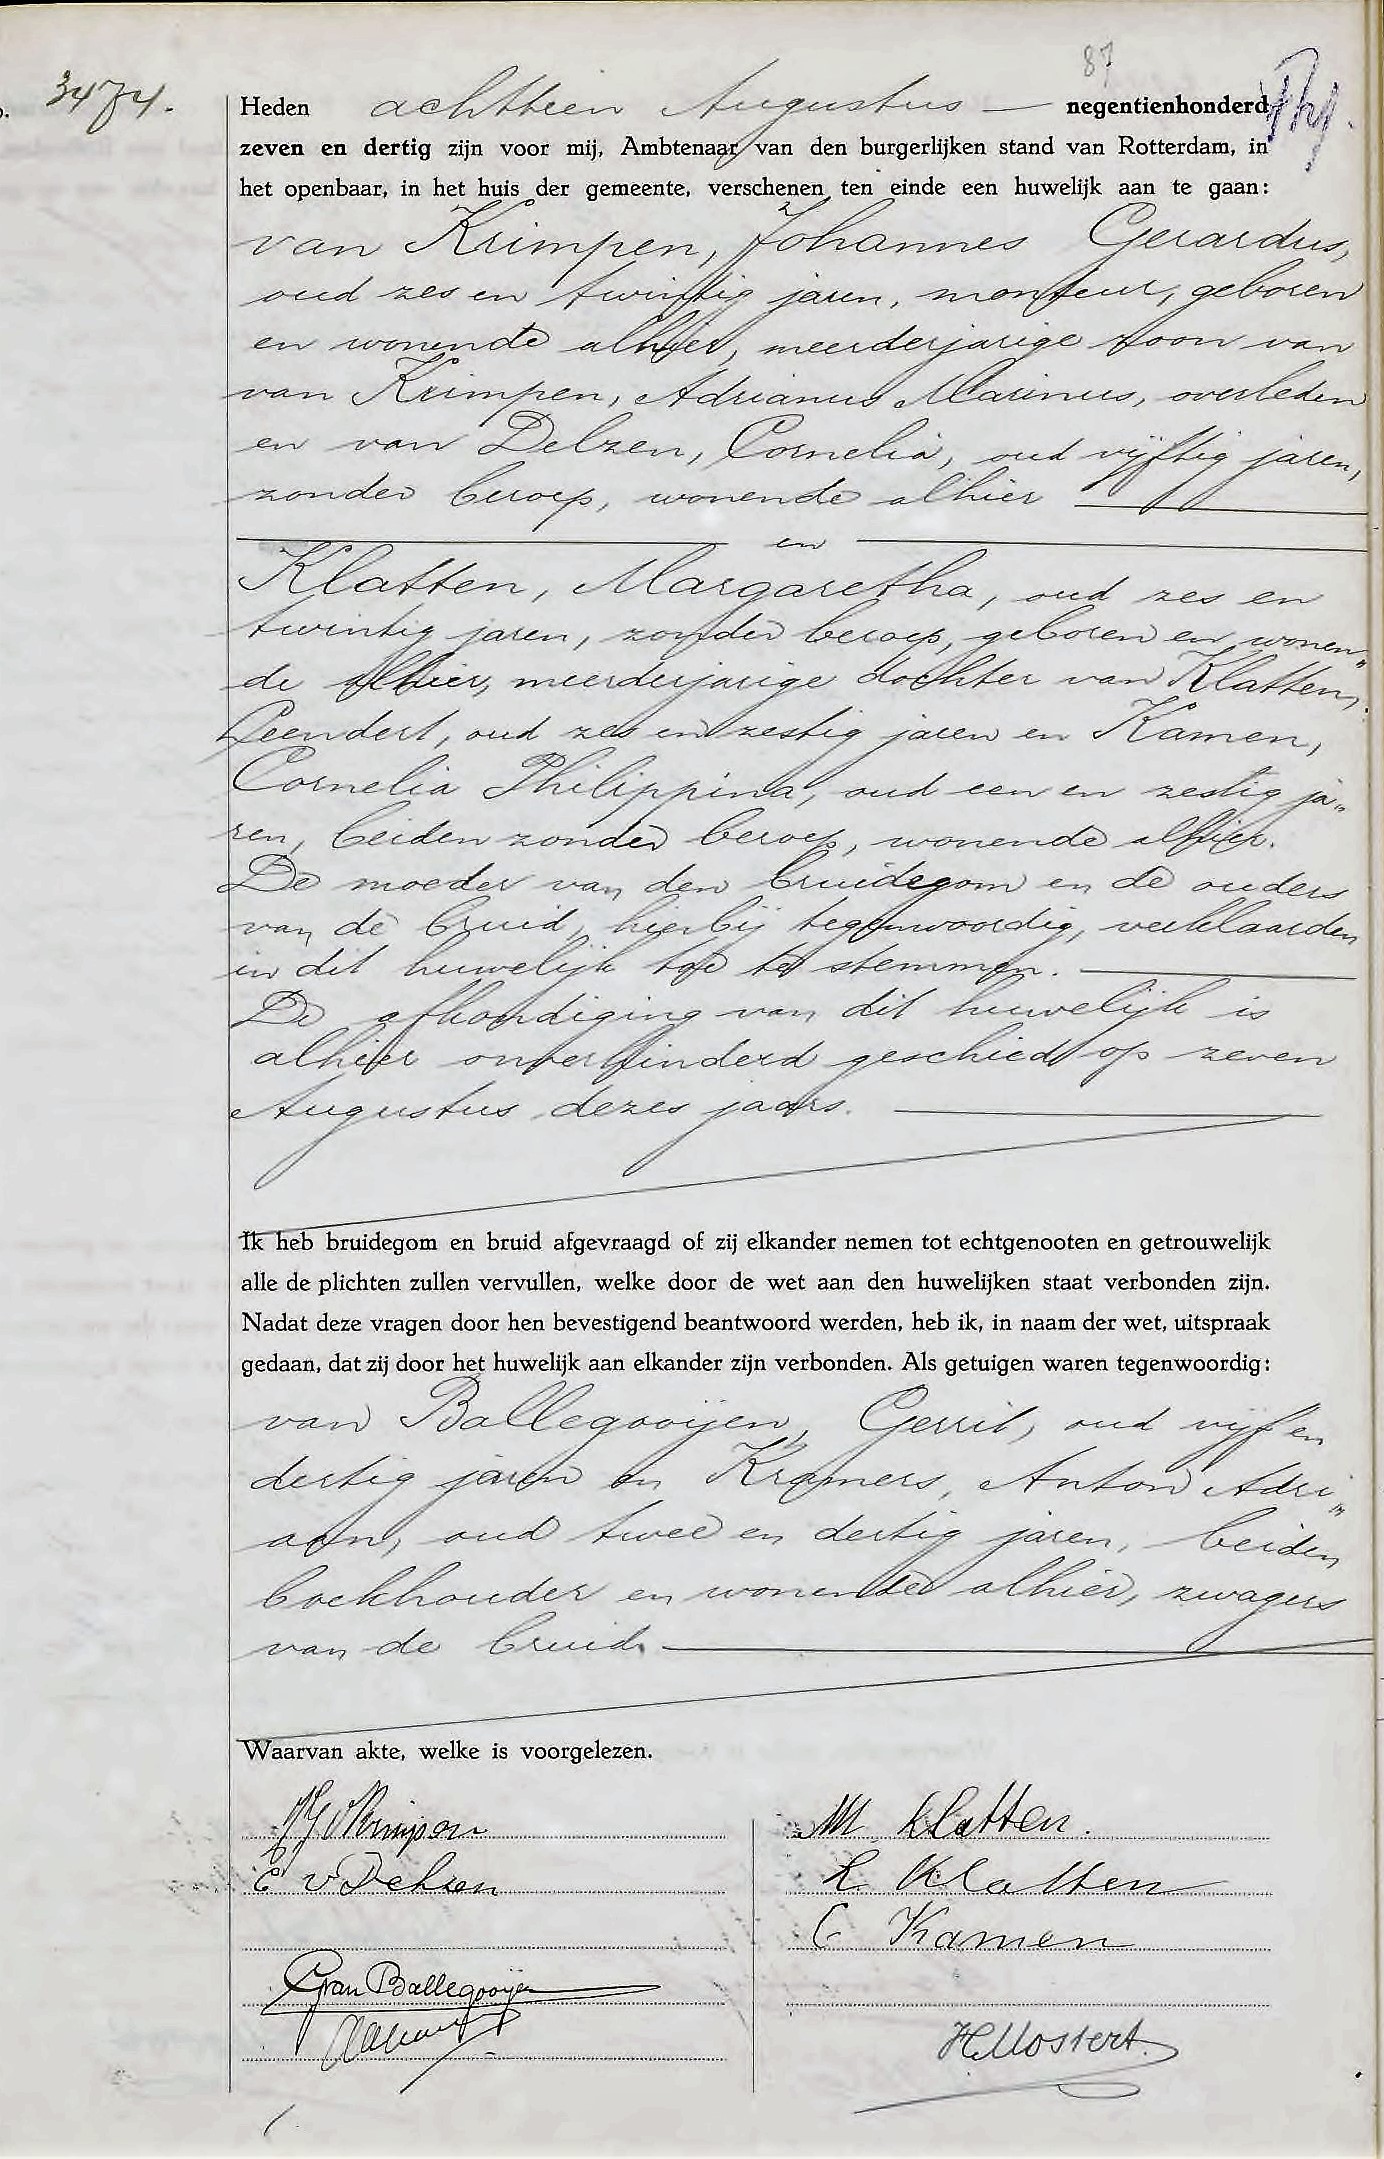 87
3474.
Heden achttien Augustus — negentienhonderd
zeven en dertig zijn voor mij, Ambtenaar van den burgerlijken stand van Rotterdam, in
het openbaar, in het huis der gemeente, verschenen ten einde een huwelijk aan te gaan:
van Krimpen, Johannes Gerardus,
oud zes en twintig jaren, monteur, geboren
en wonende alhier, meerderjarige zoon van
van Krimpen, Adrianus Marinus, overleden
en van Delzen, Cornelia, oud vijftig jaren,
zonder beroep, wonende alhier
en
Klatten, Margaretha, oud zes en
twintig jaren, zonder beroep, geboren en wonen„
de alhier, meerderjarige dochter van Klatten,
Leendert, oud zes en zestig jaren en Kamen,
Cornelia Philippina, oud een en zestig ja„
ren, beiden zonder beroep, wonende alhier.
De moeder van den bruidegom en de ouders
van de bruid, hierbij tegenwoordig, verklaarden
in dit huwelijk toe te stemmen.
De afkondiging van dit huwelijk is
alhier onverhinderd geschied op zeven
Augustus dezes jaars.
Ik heb bruidegom en bruid afgevraagd of zij elkander nemen tot echtgenooten en getrouwelijk
alle de plichten zullen vervullen, welke door de wet aan den huwelijken staat verbonden zijn.
Nadat deze vragen door hen bevestigend beantwoord werden, heb ik, in naam der wet, uitspraak
gedaan, dat zij door het huwelijk aan elkander zijn verbonden. Als getuigen waren tegenwoordig:
van Ballegooijen, Gerrit, oud vijf en
dertig jaren en Kramers, Anton Adri„
aan, oud twee en dertig jaren, beiden
boekhouder en wonende alhier, zwagers
van de bruid.
Waarvan akte, welke is voorgelezen.
JG v Krimpen
M Klatten.
C v Delzen
L Klatten
C Kamen
G van Ballegooijen
H. Mostert.